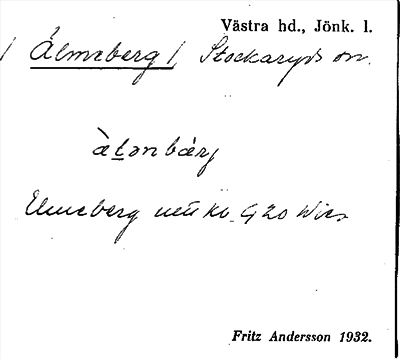 Västra hd., Jönk. l.
/ Älmeberg /, Stockaryds sn.
àtənbærj
Elmeberg
Fritz Andersson 1932.